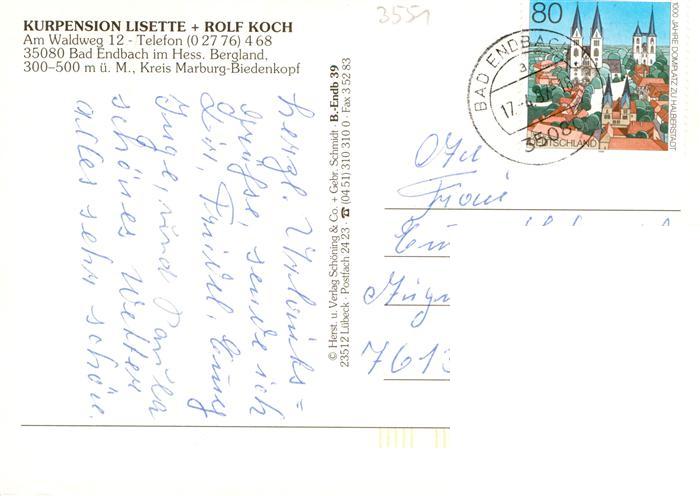 3551
KURPENSION LISETTE + ROLF KOCH
Am Waldweg 12 - Telefon (0 27 76) 4 68
35080 Bad Endbach im Hess. Bergland,
300–500 m ü. M., Kreis Marburg-Biedenkopf
herzl. Urlaubs=
grüße, sende ich
Dir,
Inge, und
schönes Wetter
alles sehr schön.
© Herst. u. Verlag Schöning & Co. + Gebr. Schmidt · B.-Endb 39
23512 Lübeck · Postfach 24 23 · ☎ (04 51) 310 310 0 · Fax 3 52 83
80
1000 JAHRE DOMPLATZ ZU HALBERSTADT
DEUTSCHLAND
BAD ENDBACH
a
17.
3508
An
Frau
7613